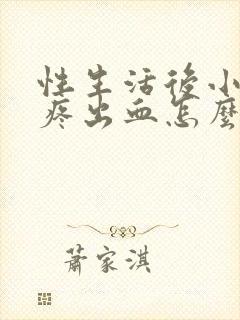 性生活後小
疼出血怎麼
蕭家淇